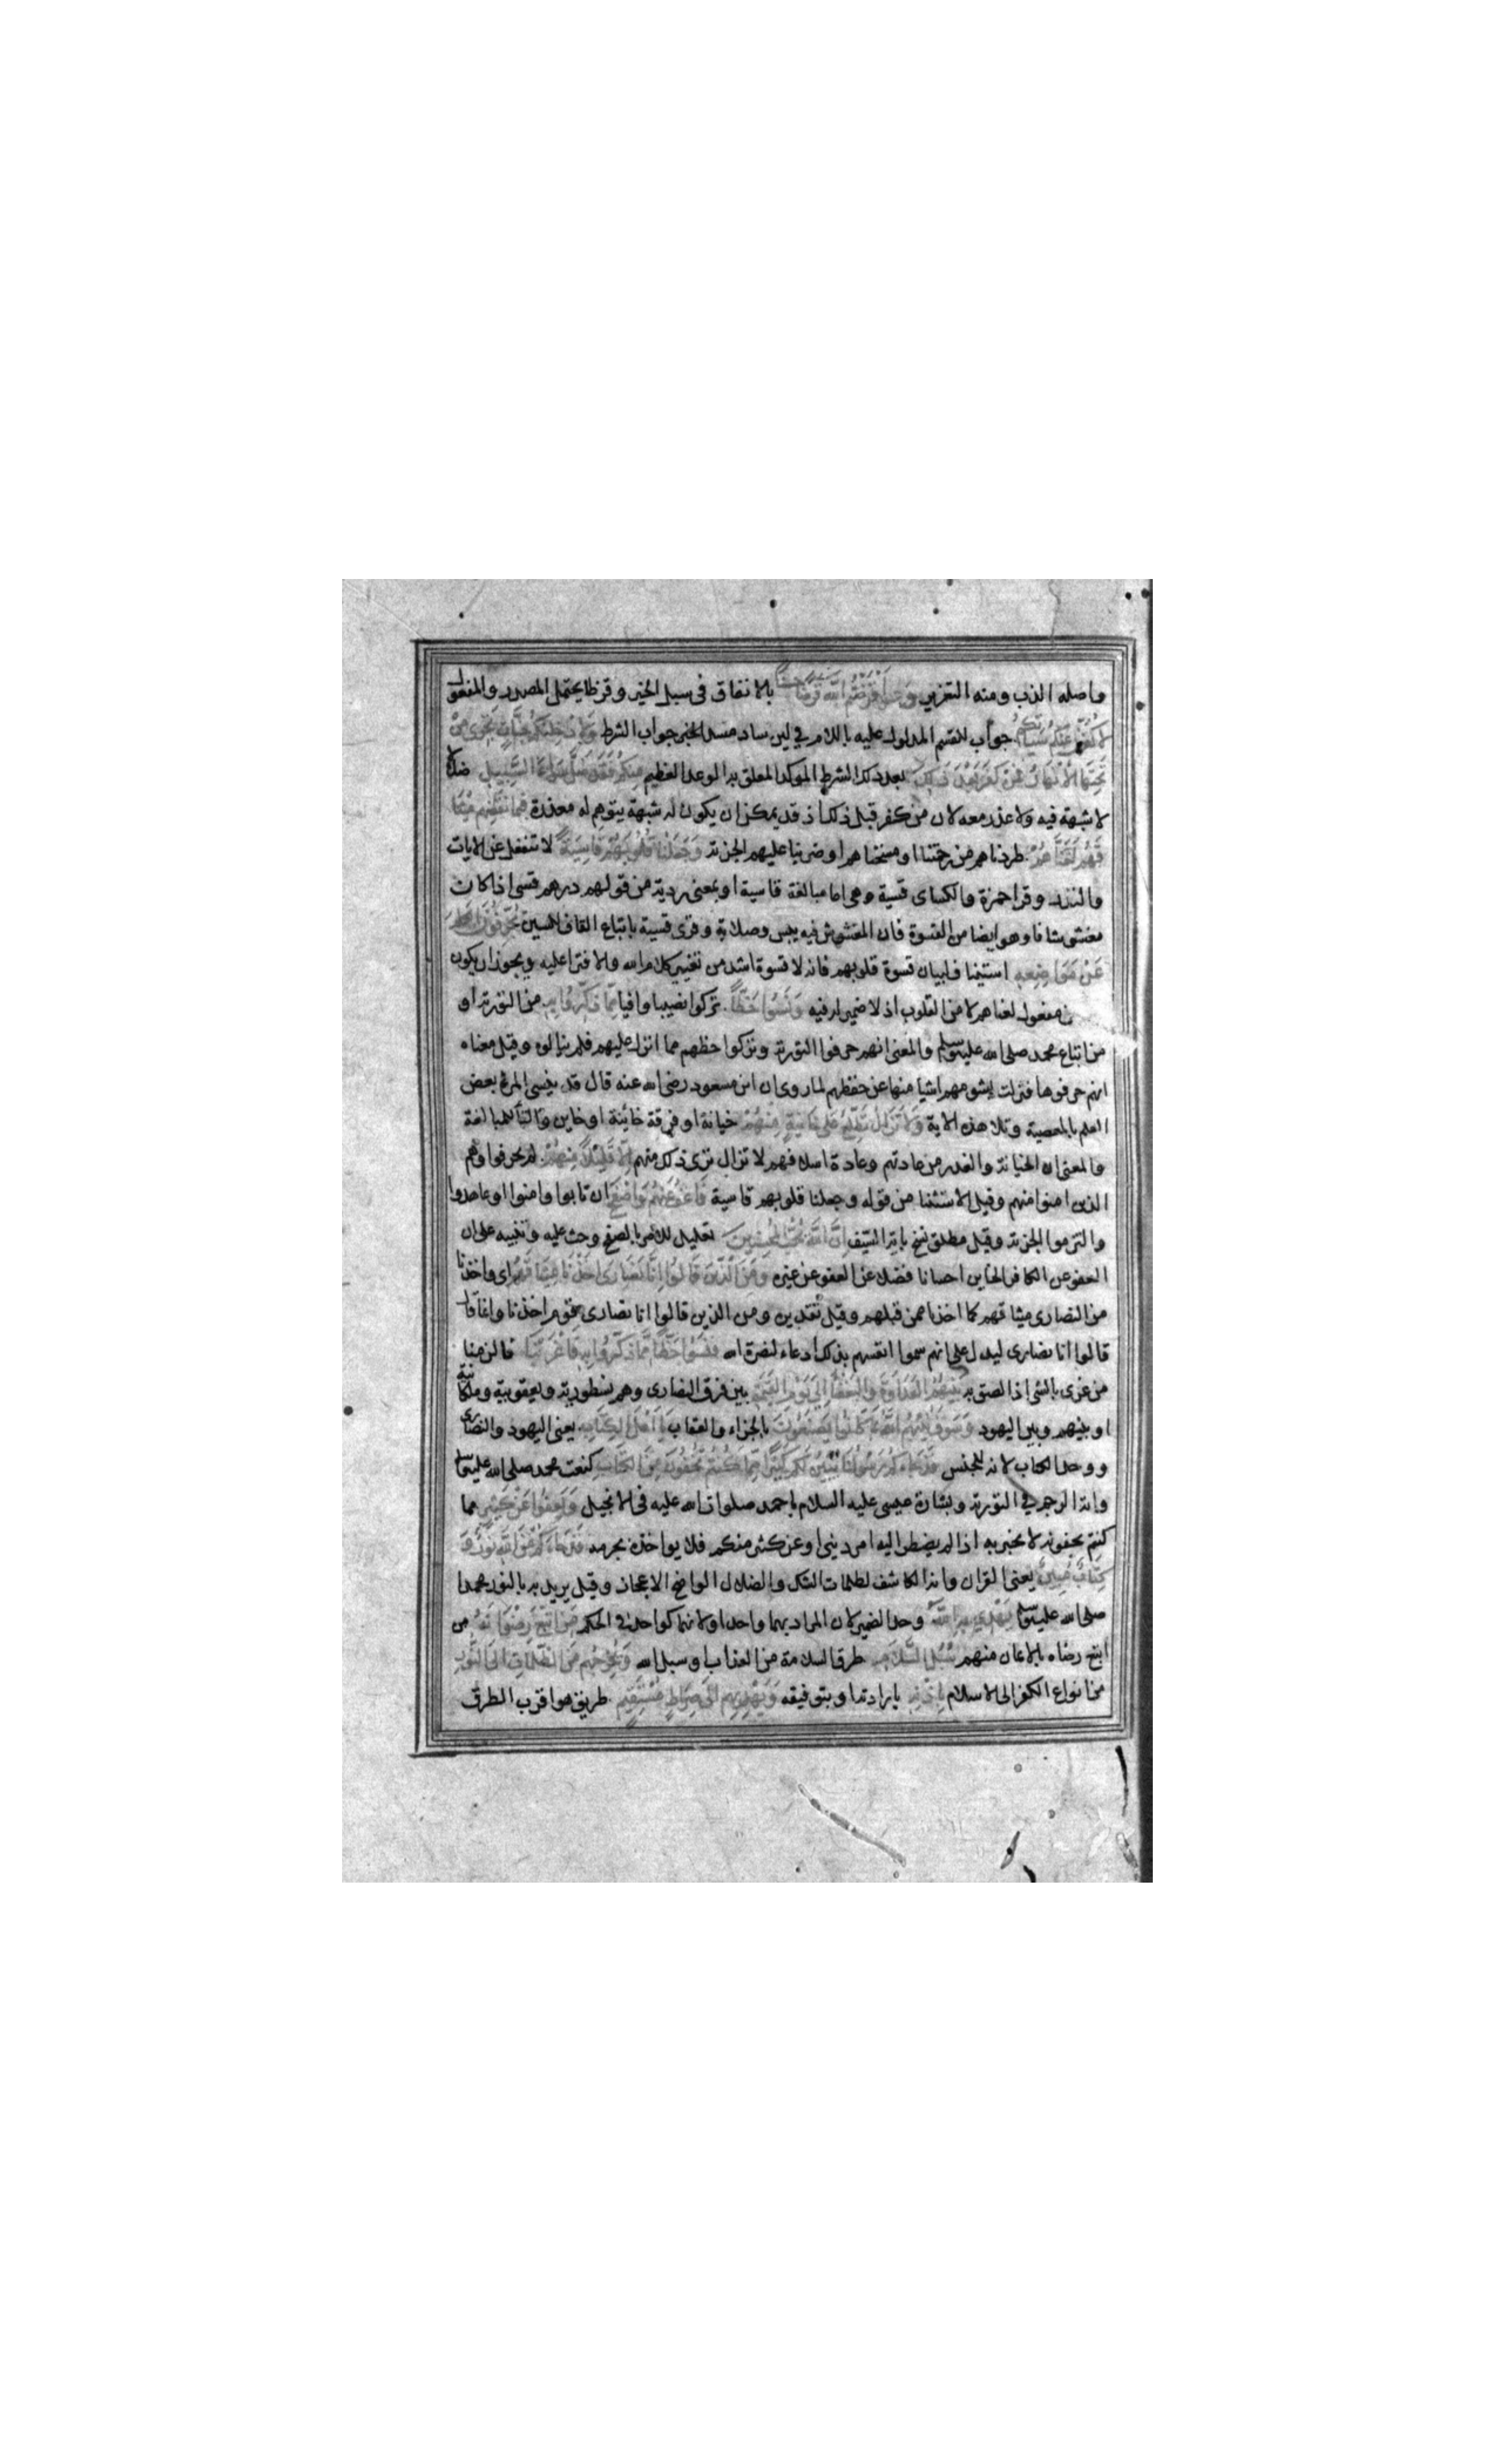 واصله الذب ومنه التعزير وَاَقْرَضْتُمُ اللَّهَ قَرْضًا حَسَنًا بالانفاق فى سبيل الخير وقرضا يحتمل المصدر والمفعول
لَاُكَفِّرَنَّ عَنْكُمْ سَيِّئَاتِكُمْ جواب للقسم المدلول عليه باللام في لين ساد مسد الخبر جواب الشرط وَلَاُدْخِلَنَّكُمْ جَنَّاتٍ تَجْرِى مِنْ
تَحْتِهَا الْاَنْهَارُ فَمَنْ كَفَرَ بَعْدَ ذَلِكَ بعد ذلك الشرط الموكد المعلق به الوعد العظيم مِنْكُمْ فَقَدْ ضَلَّ سَوَاءَ السَّبِيلِ ضلالا
لا شبهة فيه ولا عذر معه لان من كفر قبل ذلك اذ قد يمكن ان يكون له شبهة يتوهم له معذرة فَبِمَا نَقْضِهِمْ مِيثَا
قَهُمْ لَعَنَّاهُمْ طردناهم من رحمتنا او مسخناهم او ضربنا عليهم الجزية وَجَعَلْنَا قُلُوبَهُمْ قَاسِيَةً لا تنفعل عن الايات
والنذر وقرا حمزة والكساى قسية وهى اما مبالغة قاسية او بمعنى ردية من قولهم درهم قسى اذا كان
مغشوشا وهو ايضا من القسوة فان المغشوش فيه يبس وصلابة وقرى قسية باتباع القاف للسين يُحَرِّفُونَ الْكَلِمَ
عَنْ مَوَاضِعِهِ استيناف لبيان قسوة قلوبهم فانه لا قسوة اشد من تغيير كلام الله والافترا عليه ويجوز ان يكون
مفعول لعناهم لا من القلوب اذ لا ضمير له فيه وَنَسُوا حَظًّا تركوا نصيبا وافيا مِمَّا ذُكِّرُوا بِهِ من التورية او
من اتباع محمد صلى الله عليه وسلم والمعنى انهم حرفوا التورية وتركوا حظهم مما انزل عليهم فلم ينالوه وقيل معناه
انهم حرفوها فزلت بشومهم اشيا منها عن حفظهم لما روى ان ابن مسعود رضى الله عنه قال قد ينسى المرء بعض
العلم بالمعصية وتلا هذه الاية وَلَا تَزَالُ تَطَّلِعُ عَلَى خَائِنَةٍ مِنْهُمْ خيانة او فرقة خائنة او خاين والتا للمبالغة
والمعنى ان الخيانة والغدر من عادتهم وعادة اسلافهم لا تزال ترى ذلك منهم اِلَّا قَلِيلًا مِنْهُمْ لم يحرفوا وهم
الذين امنوا منهم وقيل الاستثنا من قوله وجعلنا قلوبهم قاسية فَاعْفُ عَنْهُمْ وَاصْفَحْ ان تابوا وامنوا او عاهدوا
والتزموا الجزية وقيل مطلق نسخ باية السيف اِنَّ اللَّهَ يُحِبُّ الْمُحْسِنِينَ تعليل للامر بالصفح وحث عليه وتنبيه على ان
العفو عن الكافر الخاين احسانا فضلا عن العفو عن غيره وَمِنَ الَّذِينَ قَالُوا اِنَّا نَصَارَى اَخَذْنَا مِيثَاقَهُمْ اى واخذنا
من النصارى ميثاقهم كما اخذنا ممن قبلهم وقيل تقديره ومن الذين قالوا انا نصارى قوم اخذنا وانما قال
قالوا انا نصارى ليدل على انهم سموا انفسهم بذلك ادعاء لنصرة الله فَنَسُوا حَظًّا مِمَّا ذُكِّرُوا بِهِ فَاَغْرَيْنَا فالزمنا
من غرى بالشى اذا لصق به بَيْنَهُمُ الْعَدَاوَةَ وَالْبَغْضَاءَ اِلَى يَوْمِ الْقِيَمَةِ بين فرق النصارى وهم نسطورية ويعقوبية وملكانية
او بينهم وبين اليهود وَسَوْفَ يُنَبِّئُهُمُ اللَّهُ بِمَا كَانُوا يَصْنَعُونَ بالجزاء والعقاب يَا اَهْلَ الْكِتَابِ يعنى اليهود والنصارى
ووحد الكتاب لانه للجنس قَدْ جَاءَكُمْ رَسُولُنَا يُبَيِّنُ لَكُمْ كَثِيرًا مِمَّا كُنْتُمْ تُخْفُونَ مِنَ الْكِتَابِ كنعت محمد صلى الله عليه وسلم
واية الرجم في التورية وبشارة عيسى عليه السلام باحمد صلوات الله عليه فى الانجيل وَيَعْفُوا عَنْ كَثِيرٍ مما
كنتم تخفونه لا يخبر به اذا لم يضطر اليه امر دينى او عن كثير منكم فلا يواخذه بجرمه قَدْ جَاءَكُمْ مِنَ اللَّهِ نُورٌ وَ
كِتَابٌ مُبِينٌ يعنى القران وانه الكاشف لظلمات الشك والضلال الواضح الاعجاز وقيل يريد به بالنور محمدا
صلى الله عليه وسلم يَهْدِى بِهِ اللَّهُ وحد الضمير لان المراد بهما واحد او لانهما كواحد فى الحكم مَنِ اتَّبَعَ رِضْوَانَهُ من
اتبع رضاه بالايمان منهم سُبُلَ السَّلَامِ طرق السلامة من العذاب او سبل الله وَيُخْرِجُهُمْ مِنَ الظُّلُمَاتِ اِلَى النُّورِ
من انواع الكفر الى الاسلام بِاِذْنِهِ بارادته او بتوفيقه وَيَهْدِيهِمْ اِلَى صِرَاطٍ مُسْتَقِيمٍ طريق هو اقرب الطرق